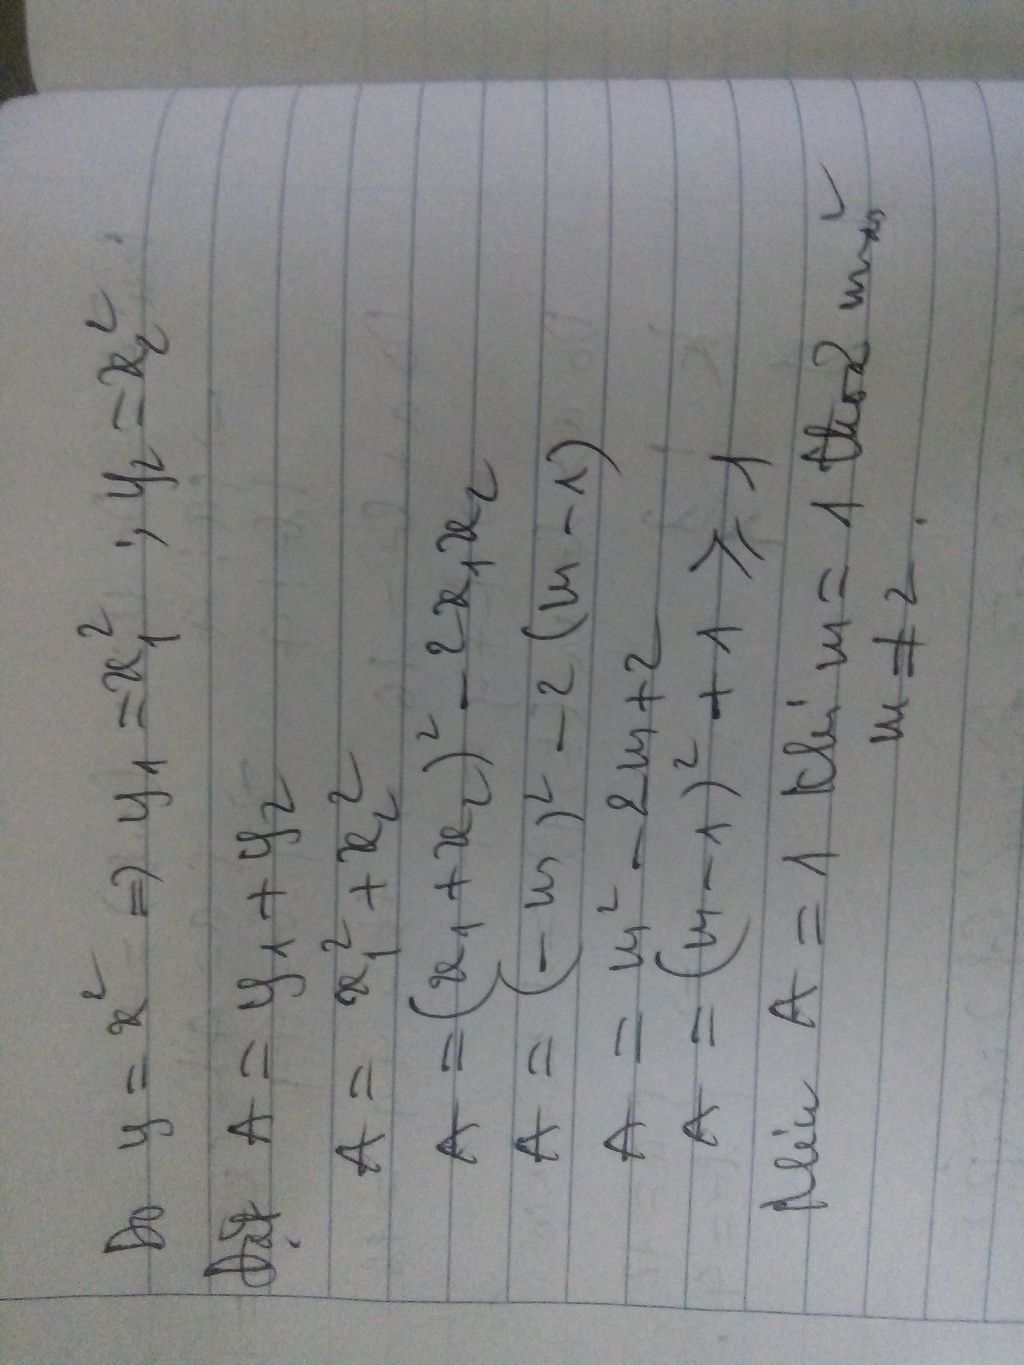 Do y = x² => y₁ = x₁² ; y₂ = x₂².
Đặt A = y₁ + y₂
A = x₁² + x₂²
A = (x₁ + x₂)² - 2x₁x₂
A = (-m)² - 2(m - 1)
A = m² - 2m + 2
A = (m - 1)² + 1 ⩾ 1
A = 1 khi m = 1 thoả mãn
m ≠ 2.